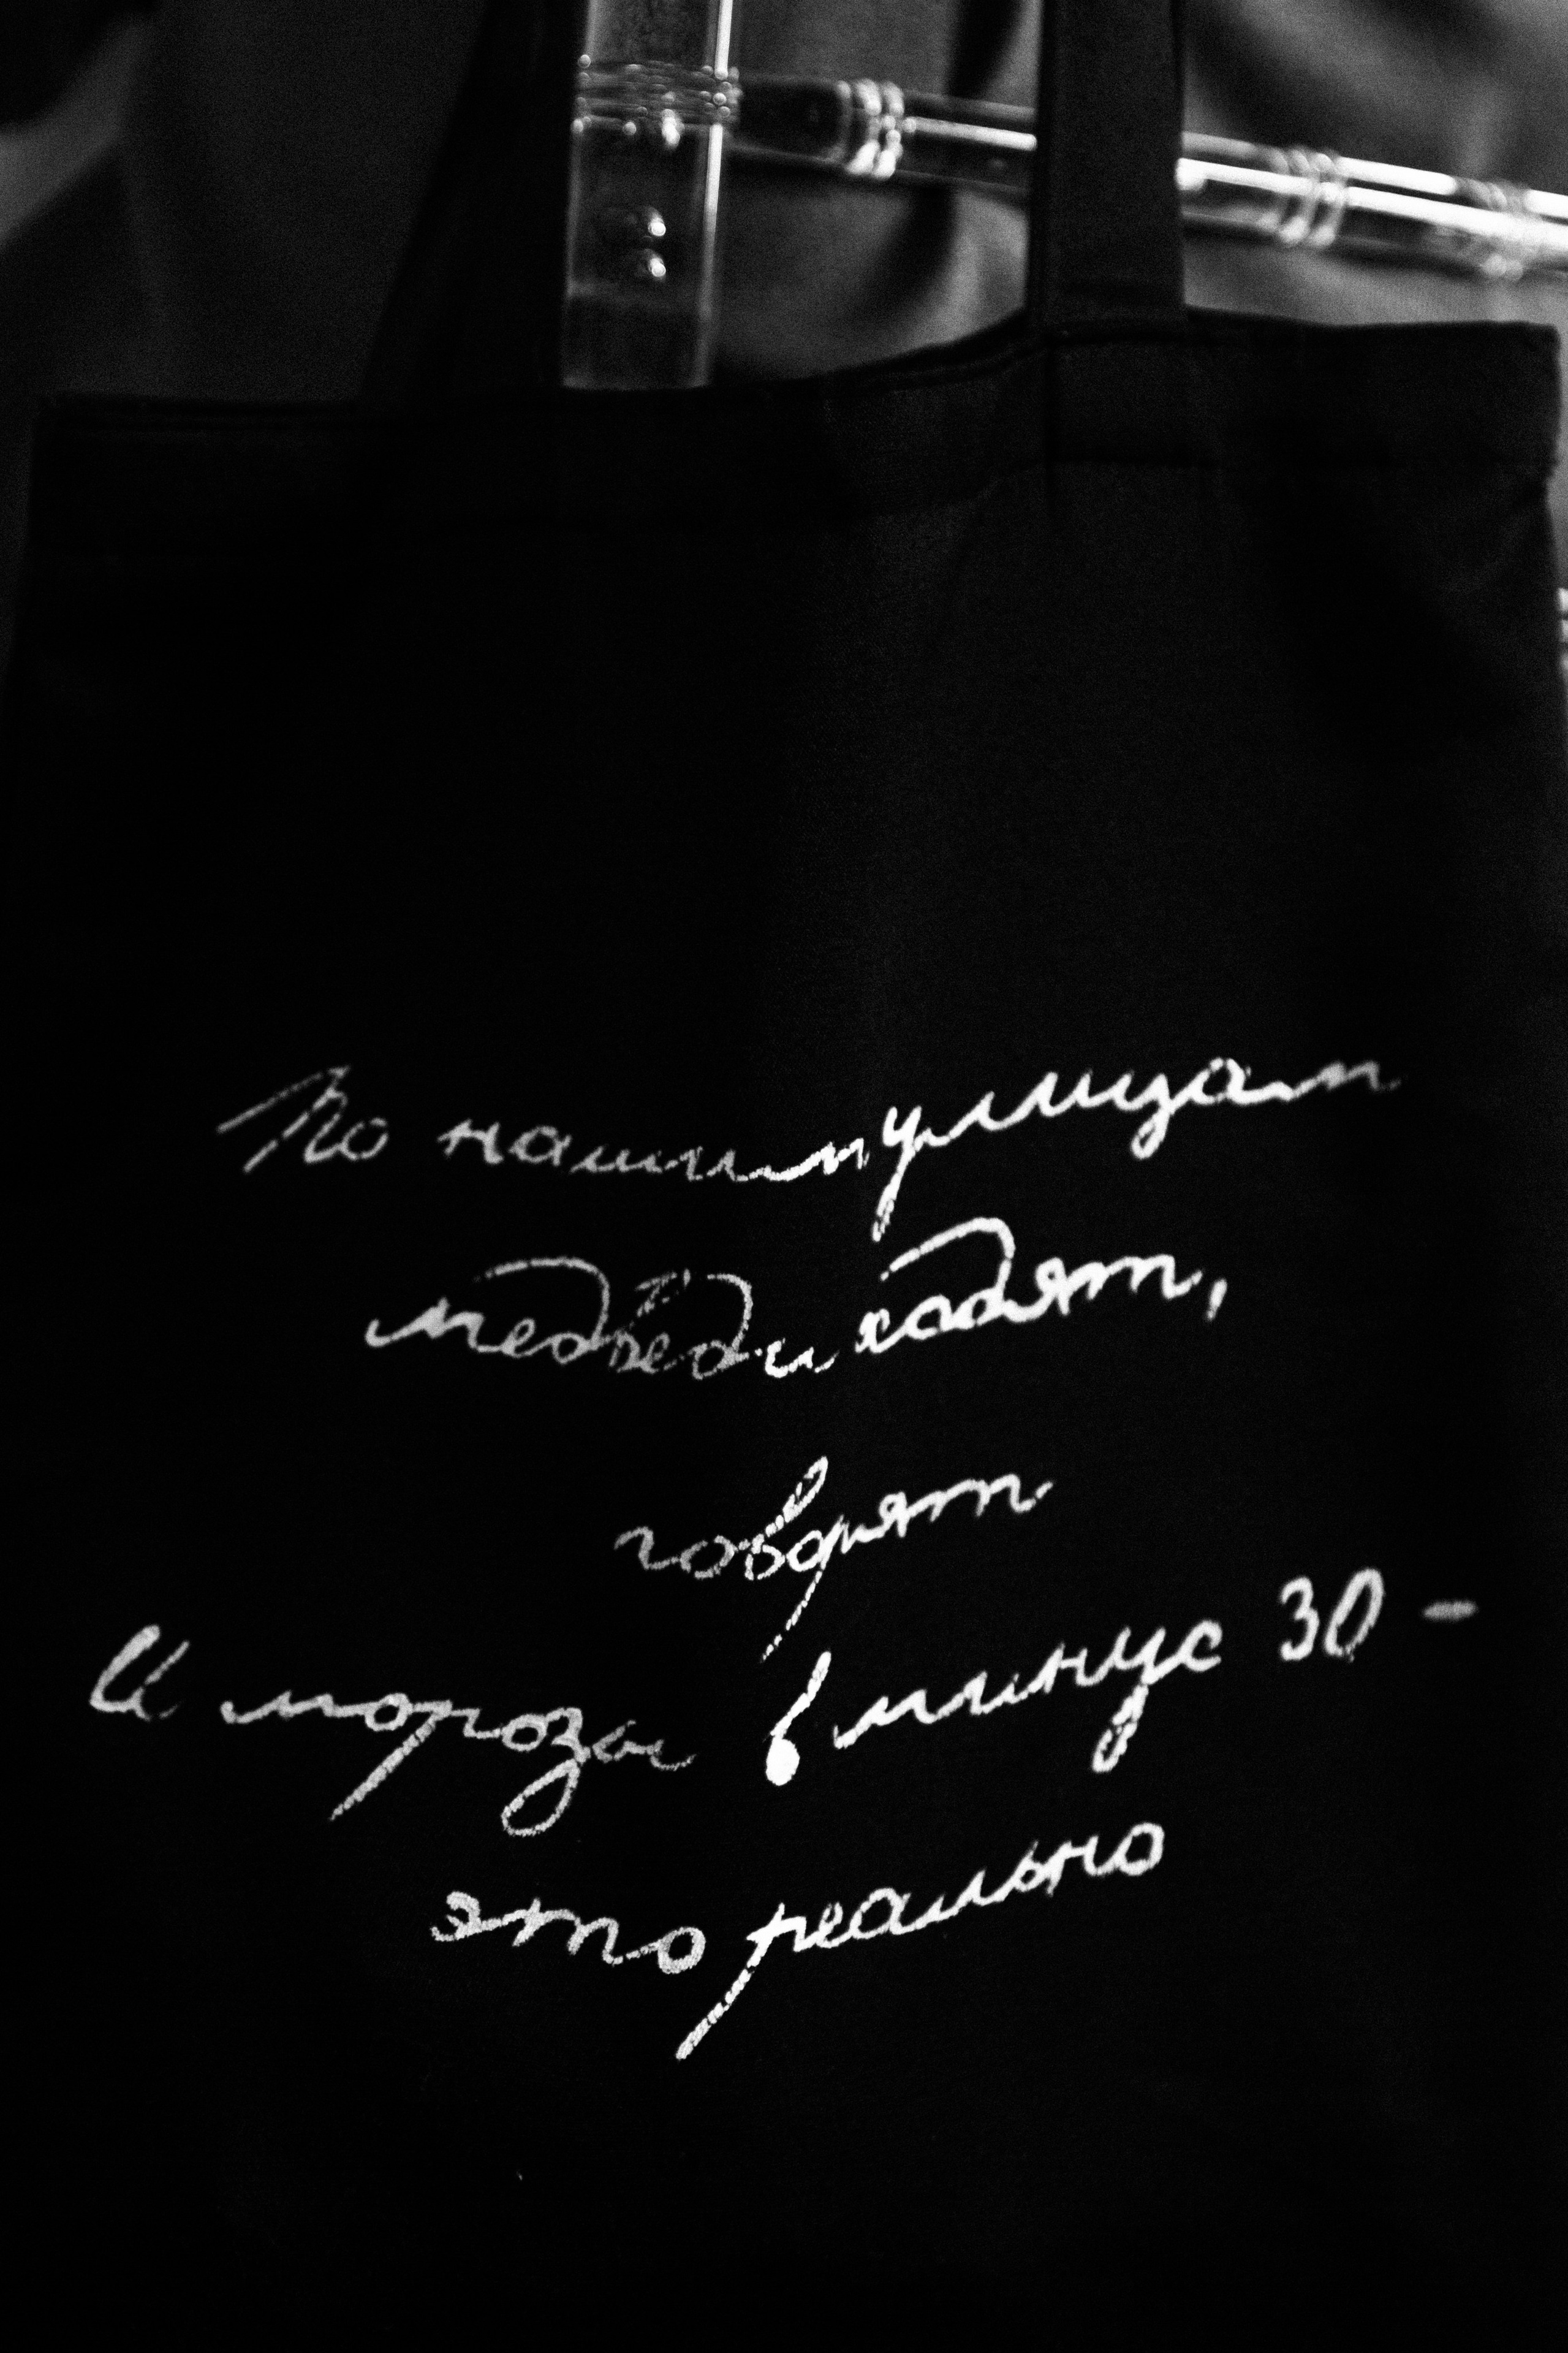 По нашим улицам
медведи ходят,
говорят
И морозы в минус 30 -
это реально